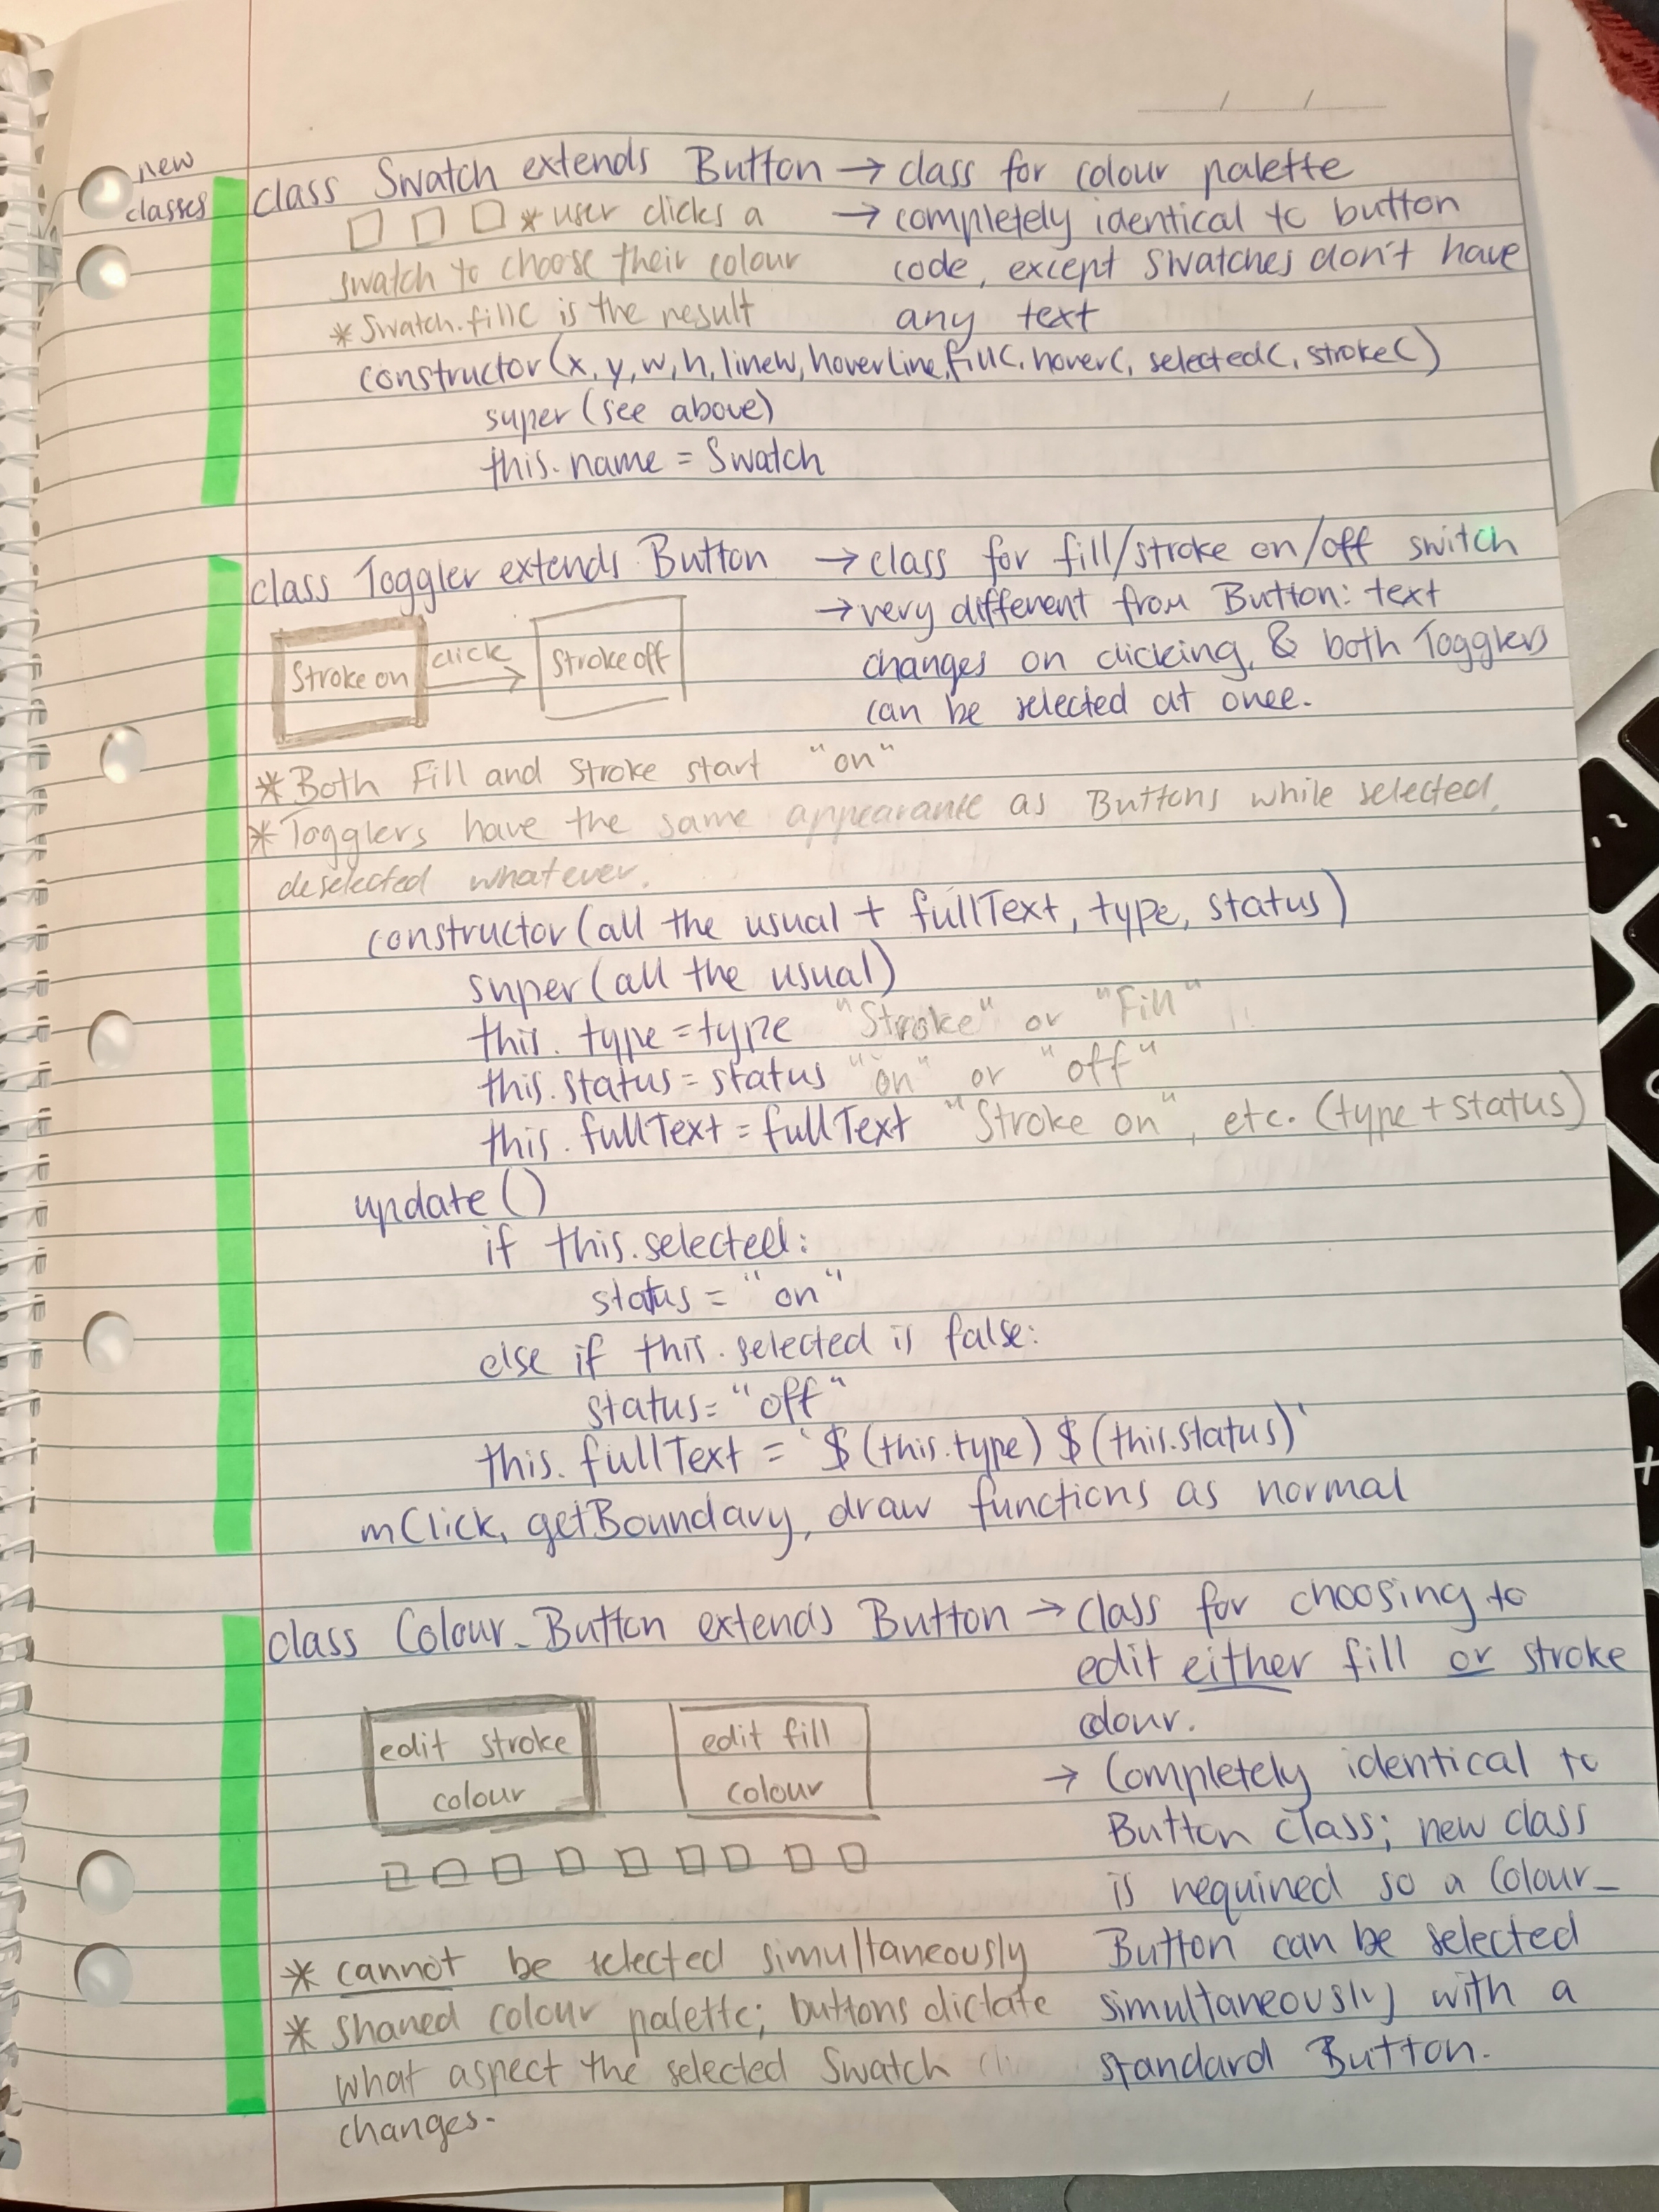 new
classes
class Swatch extends Button → class for colour palette
* user clicks a → completely identical to button
swatch to choose their colour code, except Swatches don't have
* Swatch.fillC is the result any text
constructor(x, y, w, h, linew, hoverLine, fillC, hoverC, selectedC, strokeC)
super (see above)
this.name = Swatch
class Toggler extends Button → class for fill/stroke on/off switch
→ very different from Button: text
Stroke on click Stroke off changes on clicking, & both Togglers
can be selected at once.
* Both Fill and Stroke start "on"
* Togglers have the same appearance as Buttons while selected,
deselected whatever.
constructor (all the usual + fullText, type, status)
super (all the usual)
this.type = type "Stroke" or "Fill"
this.status = status "on" or "off"
this.fullText = fullText "Stroke on", etc. (type + status)
update()
if this.selected:
status = "on"
else if this.selected is false:
status = "off"
this.fullText = `$(this.type) $(this.status)`
mClick, getBoundary, draw functions as normal
class Colour_Button extends Button → class for choosing to
edit either fill or stroke
colour.
edit stroke
colour
edit fill
colour
→ Completely identical to
Button class; new class
is required so a Colour_
Button can be selected
simultaneously with a
standard Button.
* cannot be selected simultaneously
* shared colour palette; buttons dictate
what aspect the selected Swatch
changes.